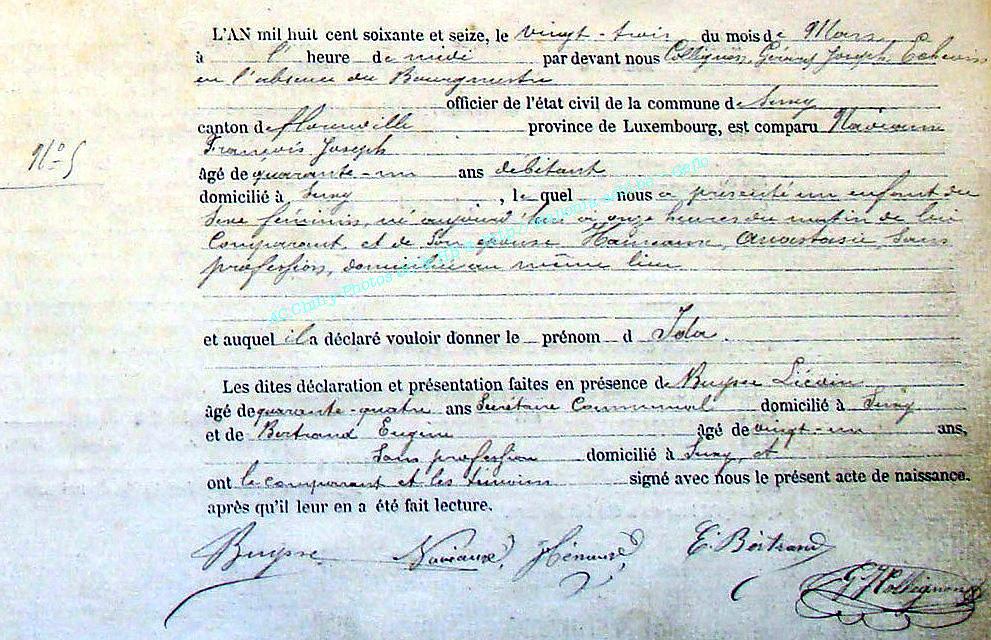 L'AN mil huit cent soixante et seize, le vingt-trois du mois de Mars
à l' heure de midi par devant nous Collignon, Gérard Joseph Echevin
en l'absence du Bourgmestre
officier de l'état civil de la commune de Suxy
canton de florenville province de Luxembourg, est comparu
François Joseph
N° 5
âgé de quarante-un ans débitant
domicilié à Suxy, le quel nous a présenté un enfant du
Sexe féminin, né aujourd'hui à onze heures du matin de lui
Comparant, et de Son épouse Anastasie, Sans
profession, domiciliée au même lieu
et auquel il a déclaré vouloir donner le prénom d Ida.
Les dites déclaration et présentation faites en présence de Buysse
âgé de quarante-quatre ans Secrétaire Communal domicilié à Suxy
et de Bertrand Eugène âgé de vingt-un ans,
Sans profession domicilié à Suxy, et
ont le comparant et les témoins signé avec nous le présent acte de naissance,
après qu'il leur en a été fait lecture.
Buysse E. Bertrand
G J Collignon